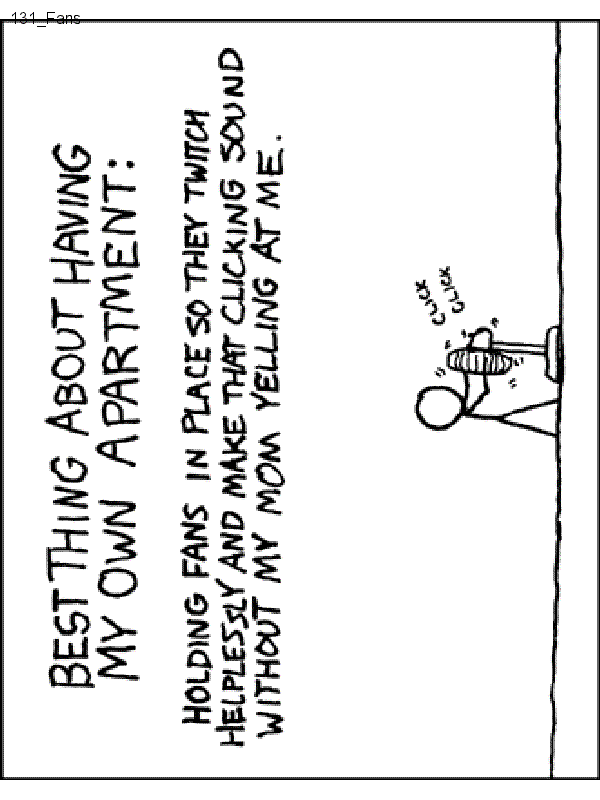 131_Fans
BEST THING ABOUT HAVING
MY OWN APARTMENT:
HOLDING FANS IN PLACE SO THEY TWITCH
HELPLESSLY AND MAKE THAT CLICKING SOUND
WITHOUT MY MOM YELLING AT ME.
CLICK
CLICK